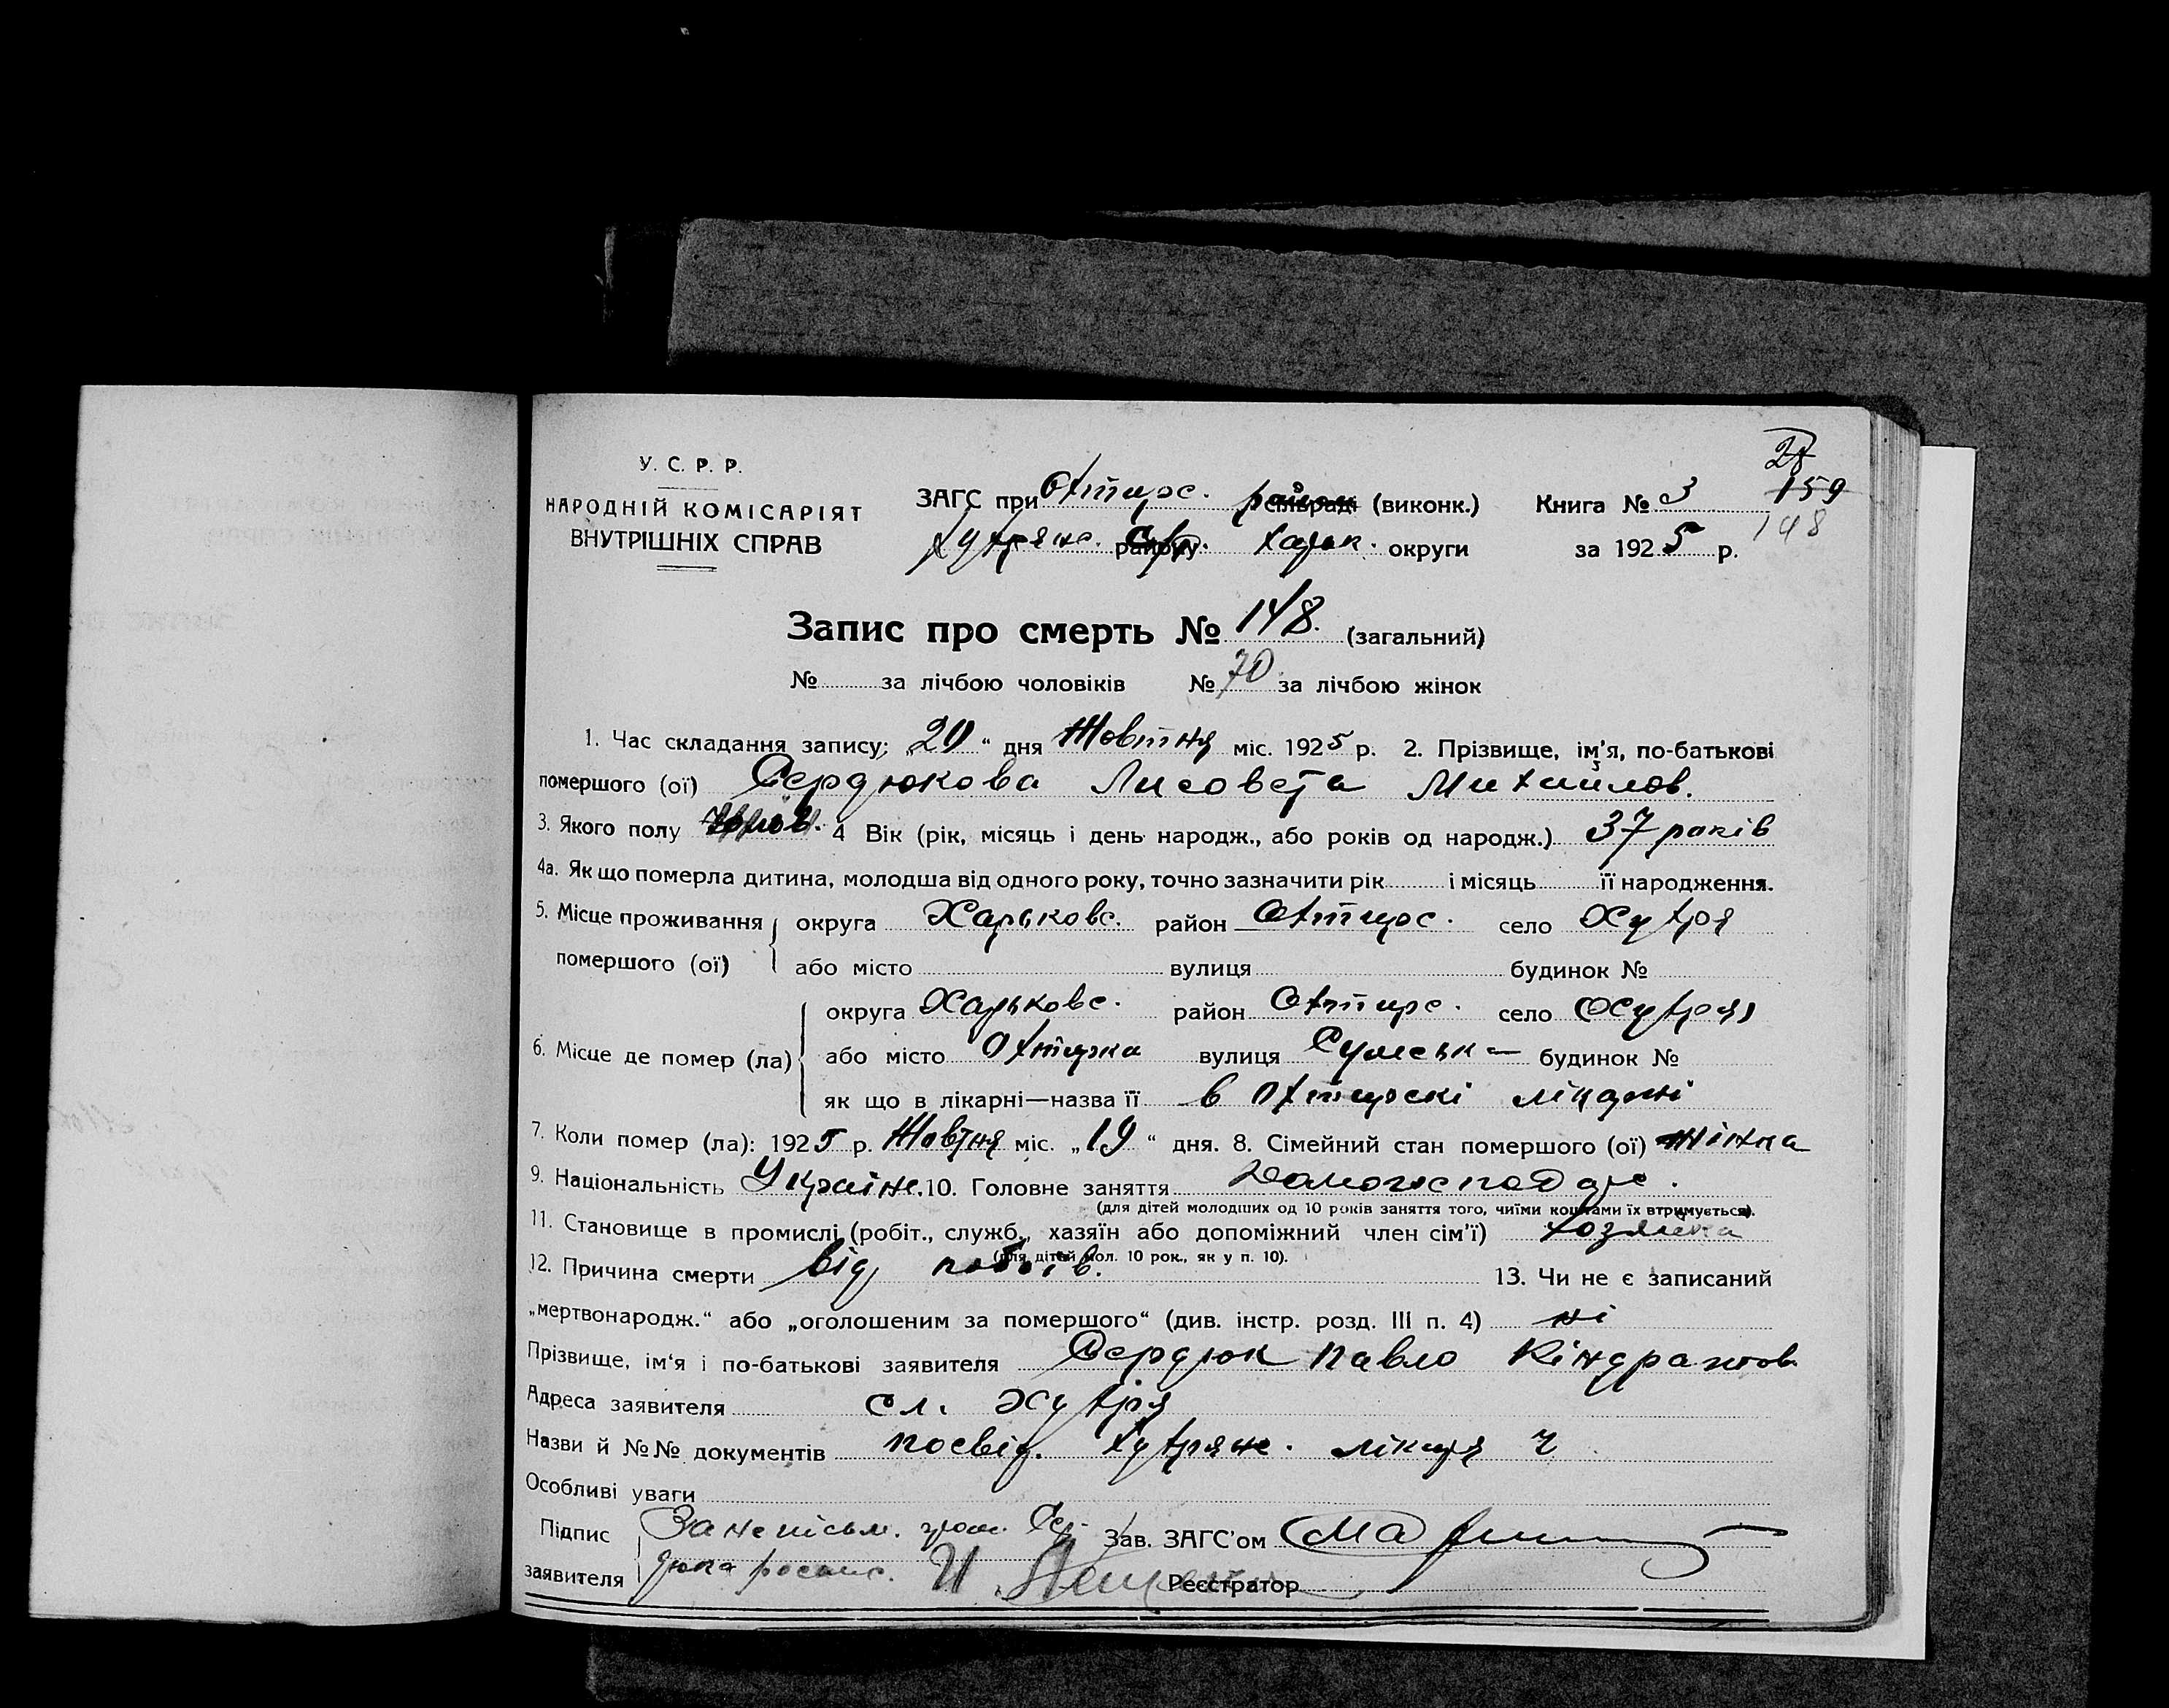 27
159
148
У. С. Р. Р.
НАРОДНІЙ КОМІСАРІЯТ
ВНУТРІШНІХ СПРАВ
ЗАГС при Охтирс. район (виконк.) Книга № 3
Хутрянс. району Харьк. округи за 1925 р.
Запис про смерть № 148. (загальний)
№ за лічбою чоловіків № 70 за лічбою жінок
1. Час складання запису; „20“ дня Жовтня міс. 1925 р. 2. Прізвище, ім’я, по-батькові
помершого (ої) Сердюкова Лисовета Михайлов.
3. Якого полу 4 Вік (рік, місяць і день народж., або років од народж.) 37 років
4а. Як що померла дитина, молодша від одного року, точно зазначити рік і місяць її народження.
5. Місце проживання округа Харьковс. район Охтирс. село Хухря
помершого (ої) або місто вулиця будинок №
округа Харьковс. район Охтирс. село Хухря
6. Місце де помер (ла) або місто Охтирка вулиця Сумська будинок №
як що в лікарні—назва її в Охтирскі лікарні
7. Коли помер (ла): 1925 р. Жовтня міс. „19“ дня. 8. Сімейний стан помершого (ої) жінка
9. Національність Україн. 10. Головне заняття Домогосподар.
(для дітей молодших од 10 років заняття того, чиїми коштами їх втримується).
11. Становище в промислі (робіт., служб., хазяїн або допоміжний член сім’ї) хозяйка
(для дітей мол. 10 рок., як у п. 10).
12. Причина смерти від побоїв. 13. Чи не є записаний
„мертвонародж.“ або „оголошеним за помершого“ (див. інстр. розд. III п. 4) ні
Прізвище, ім‘я і по-батькові заявителя Сердюк Павло Кіндратов
Адреса заявителя сл. Хухря
Назви й №№ документів посвід. Хухрянс. лікаря
Особливі уваги
Підпис За неписьм. гром. Сер- Зав. ЗАГС’ом
заявителя дюка роспис. Реєстратор